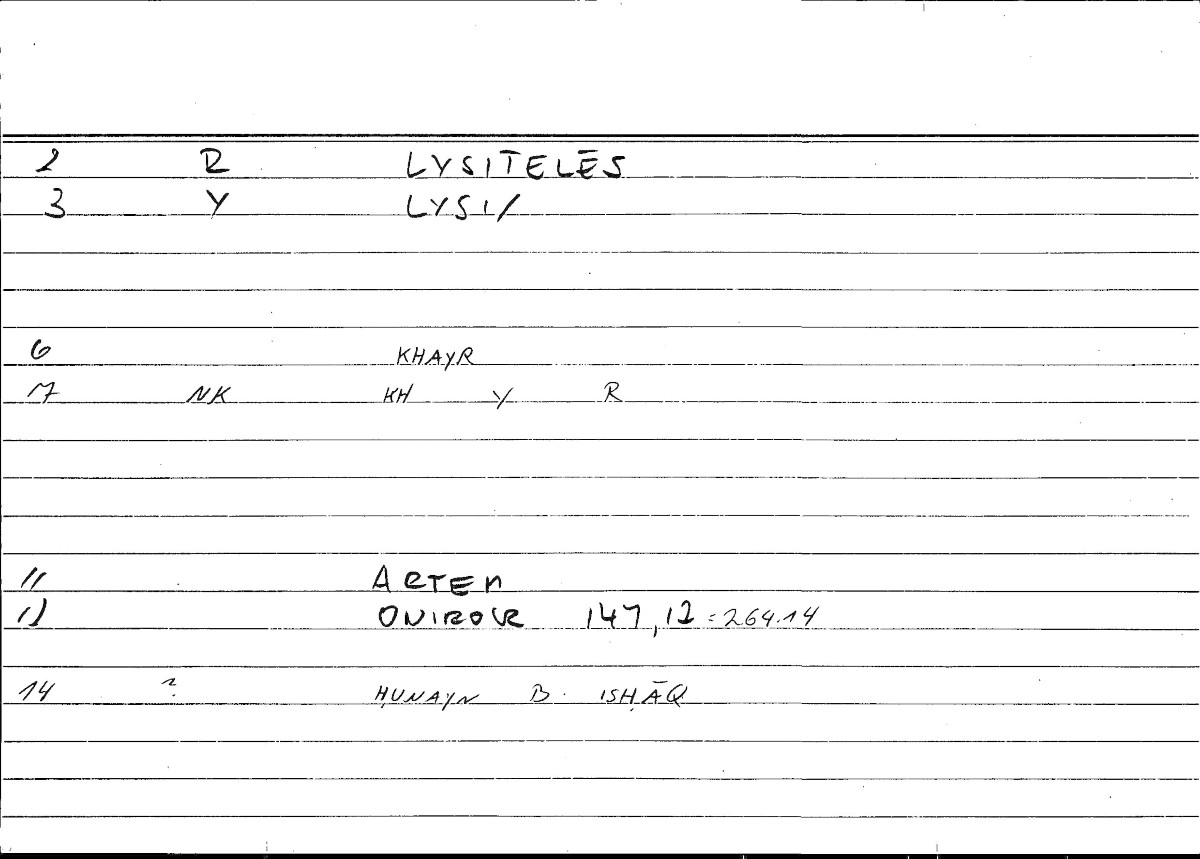 2 R LYSITELĒS
3 Y LYSI/
6 KHAYR
7 NK KH Y R
11 ARTEM
12 ONIROKR 147,12 = 264.14
14 ? ḤUNAYN B. ISḤĀQ